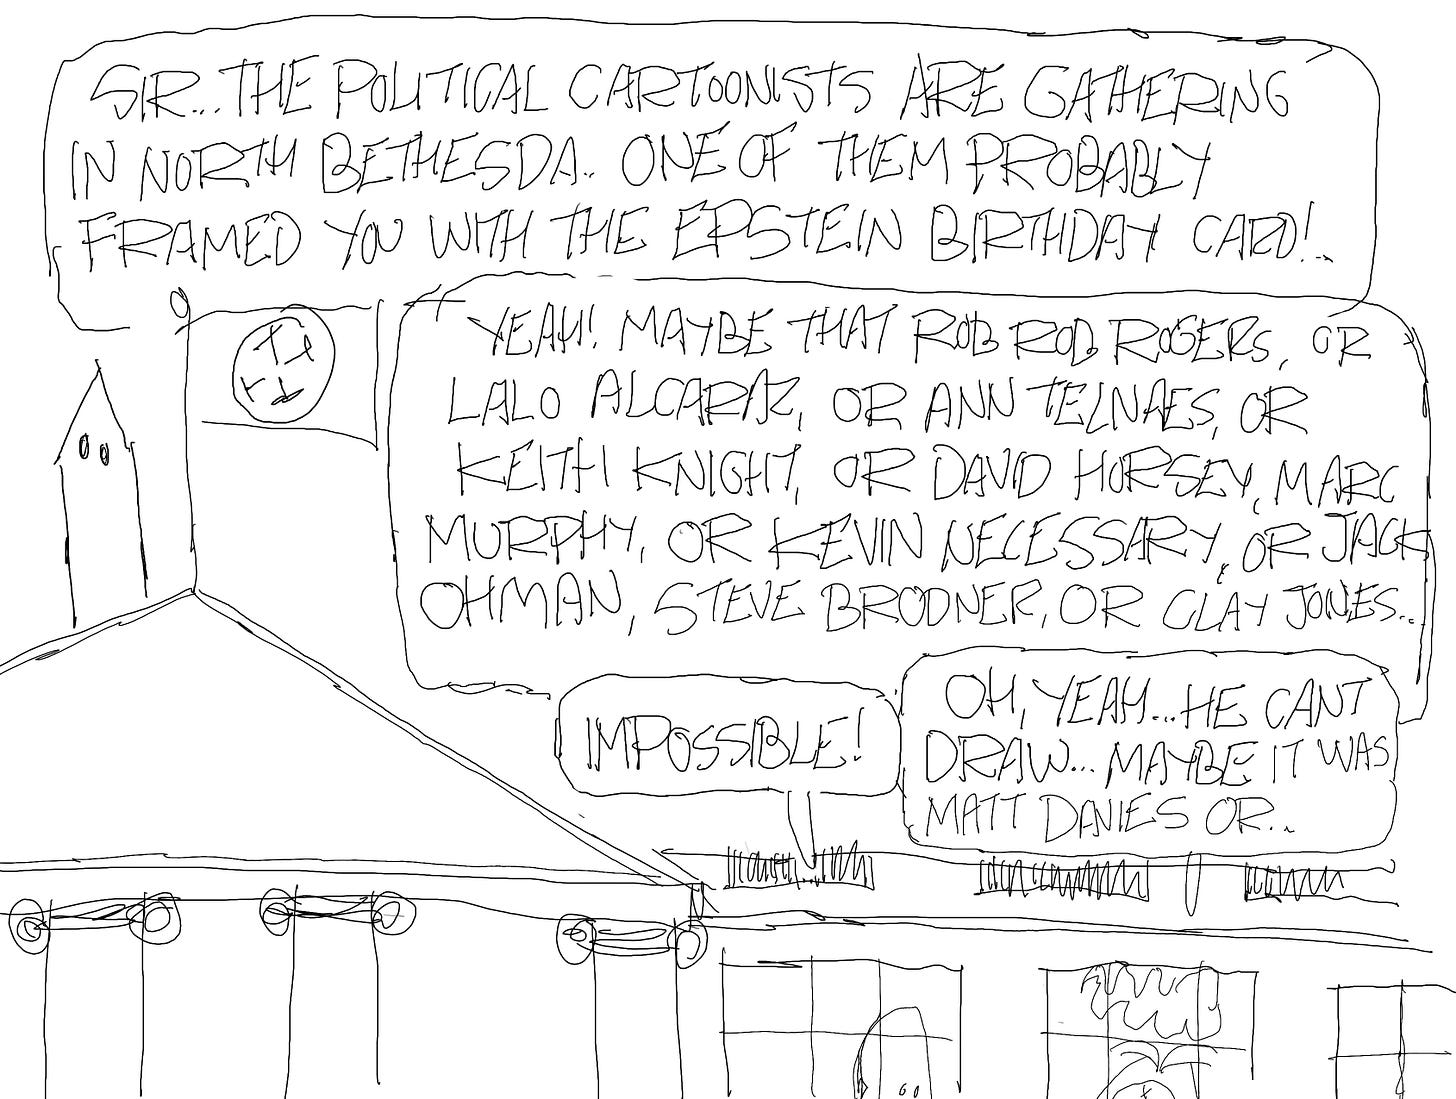 SIR...THE POLITICAL CARTOONISTS ARE GATHERING
IN NORTH BETHESDA.. ONE OF THEM PROBABLY
FRAMED YOU WITH THE EPSTEIN BIRTHDAY CARD!..
YEAH! MAYBE THAT ROB ROB ROGERS, OR
LALO ALCARAZ, OR ANN TELNAES, OR
KEITH KNIGHT, OR DAVID HORSEY, MARC
MURPHY, OR KEVIN NECESSARY, OR JACK
OHMAN, STEVE BRODNER, OR CLAY JONES..
IMPOSSIBLE!
OH, YEAH...HE CANT
DRAW... MAYBE IT WAS
MATT DAVIES OR..